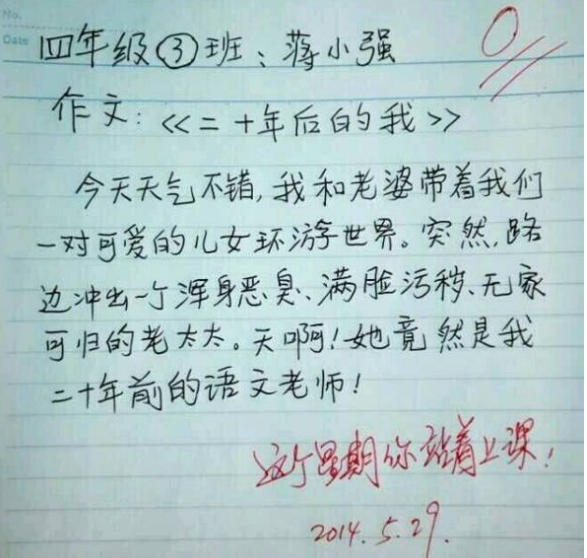 No.
Date
四年级③班：蒋小强
0
作文：<<二十年后的我>>
今天天气不错,我和老婆带着我们
一对可爱的儿女环游世界。突然,路
边冲出一个浑身恶臭、满脸污秽、无家
可归的老太太。天啊!她竟然是我
二十年前的语文老师!
这个星期你站着上课!
2014.5.29.